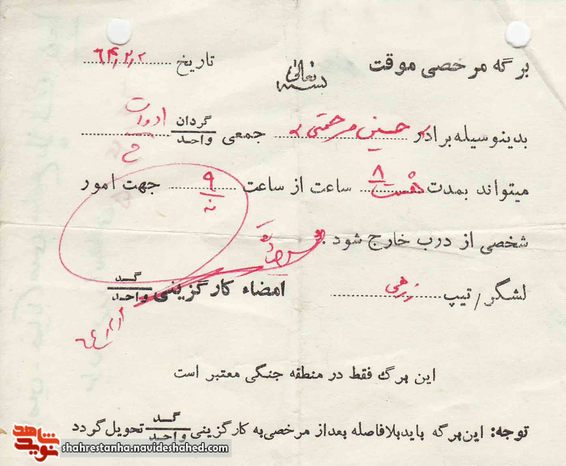 برگه مرخصی موقت تاریخ ۶۴٫۲٫۲
بسمه تعالی
بدینوسیله برادر حسین مرحمتی جمعی گردان/واحد ادوات
میتواند بمدت ۸ هشت ساعت از ساعت ۹ جهت امور
شخصی از درب خارج شود.
لشگر/تیپ زرهی امضاء کارگزینی گد/واحد
این برگ فقط در منطقه جنگی معتبر است
توجه: این برگه باید بلافاصله بعد از مرخصی به کارگزینی گد/واحد تحویل گردد
شاهد
نوید
shahrestanha.navideshahed.com